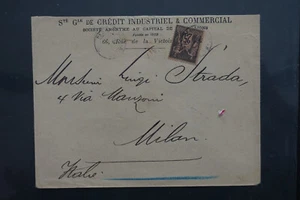 Sté Gle DE CRÉDIT INDUSTRIEL & COMMERCIAL
SOCIÉTÉ ANONYME AU CAPITAL DE
66, Rue de la Victoire
Monsieur Luigi Strada,
4 Via Manzoni
Milan.
Italie.